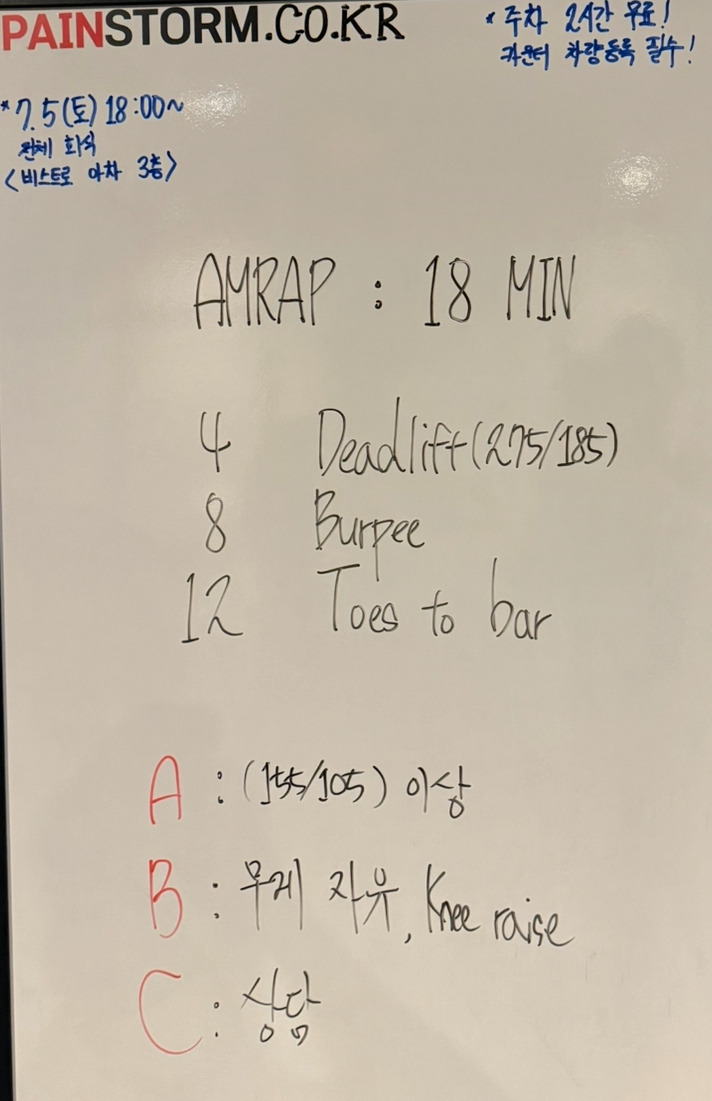 PAINSTORM.CO.KR
* 주차 2시간 무료!
카운터 차량등록 필수!
* 7.5(토) 18:00~
전체 회식
<비스트로 아차 3층>
AMRAP : 18 MIN
4 Deadlift(275/185)
8 Burpee
12 Toes to bar
A : (155/105) 이상
B : 무게 자유, Knee raise
C : 상담